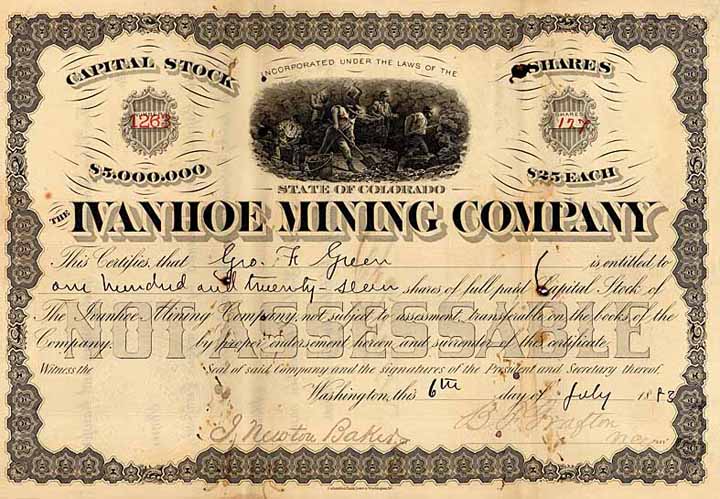 CAPITAL STOCK
INCORPORATED UNDER THE LAWS OF THE
SHARES
1263
SHARES
127
$5,000,000
$25 EACH
STATE OF COLORADO
THE IVANHOE MINING COMPANY
This Certifies, that Geo. F. Green is entitled to
one hundred and twenty-seven shares of full paid Capital Stock of
The Ivanhoe Mining Company, not subject to assessment, transferable on the books of the
Company, by proper endorsement hereon and surrender of this certificate.
NOT ASSESSABLE
Witness the Seal of said Company and the signatures of the President and Secretary thereof.
Washington, this 6th day of July 1883
J. Newton Baker
B. F. Grafton